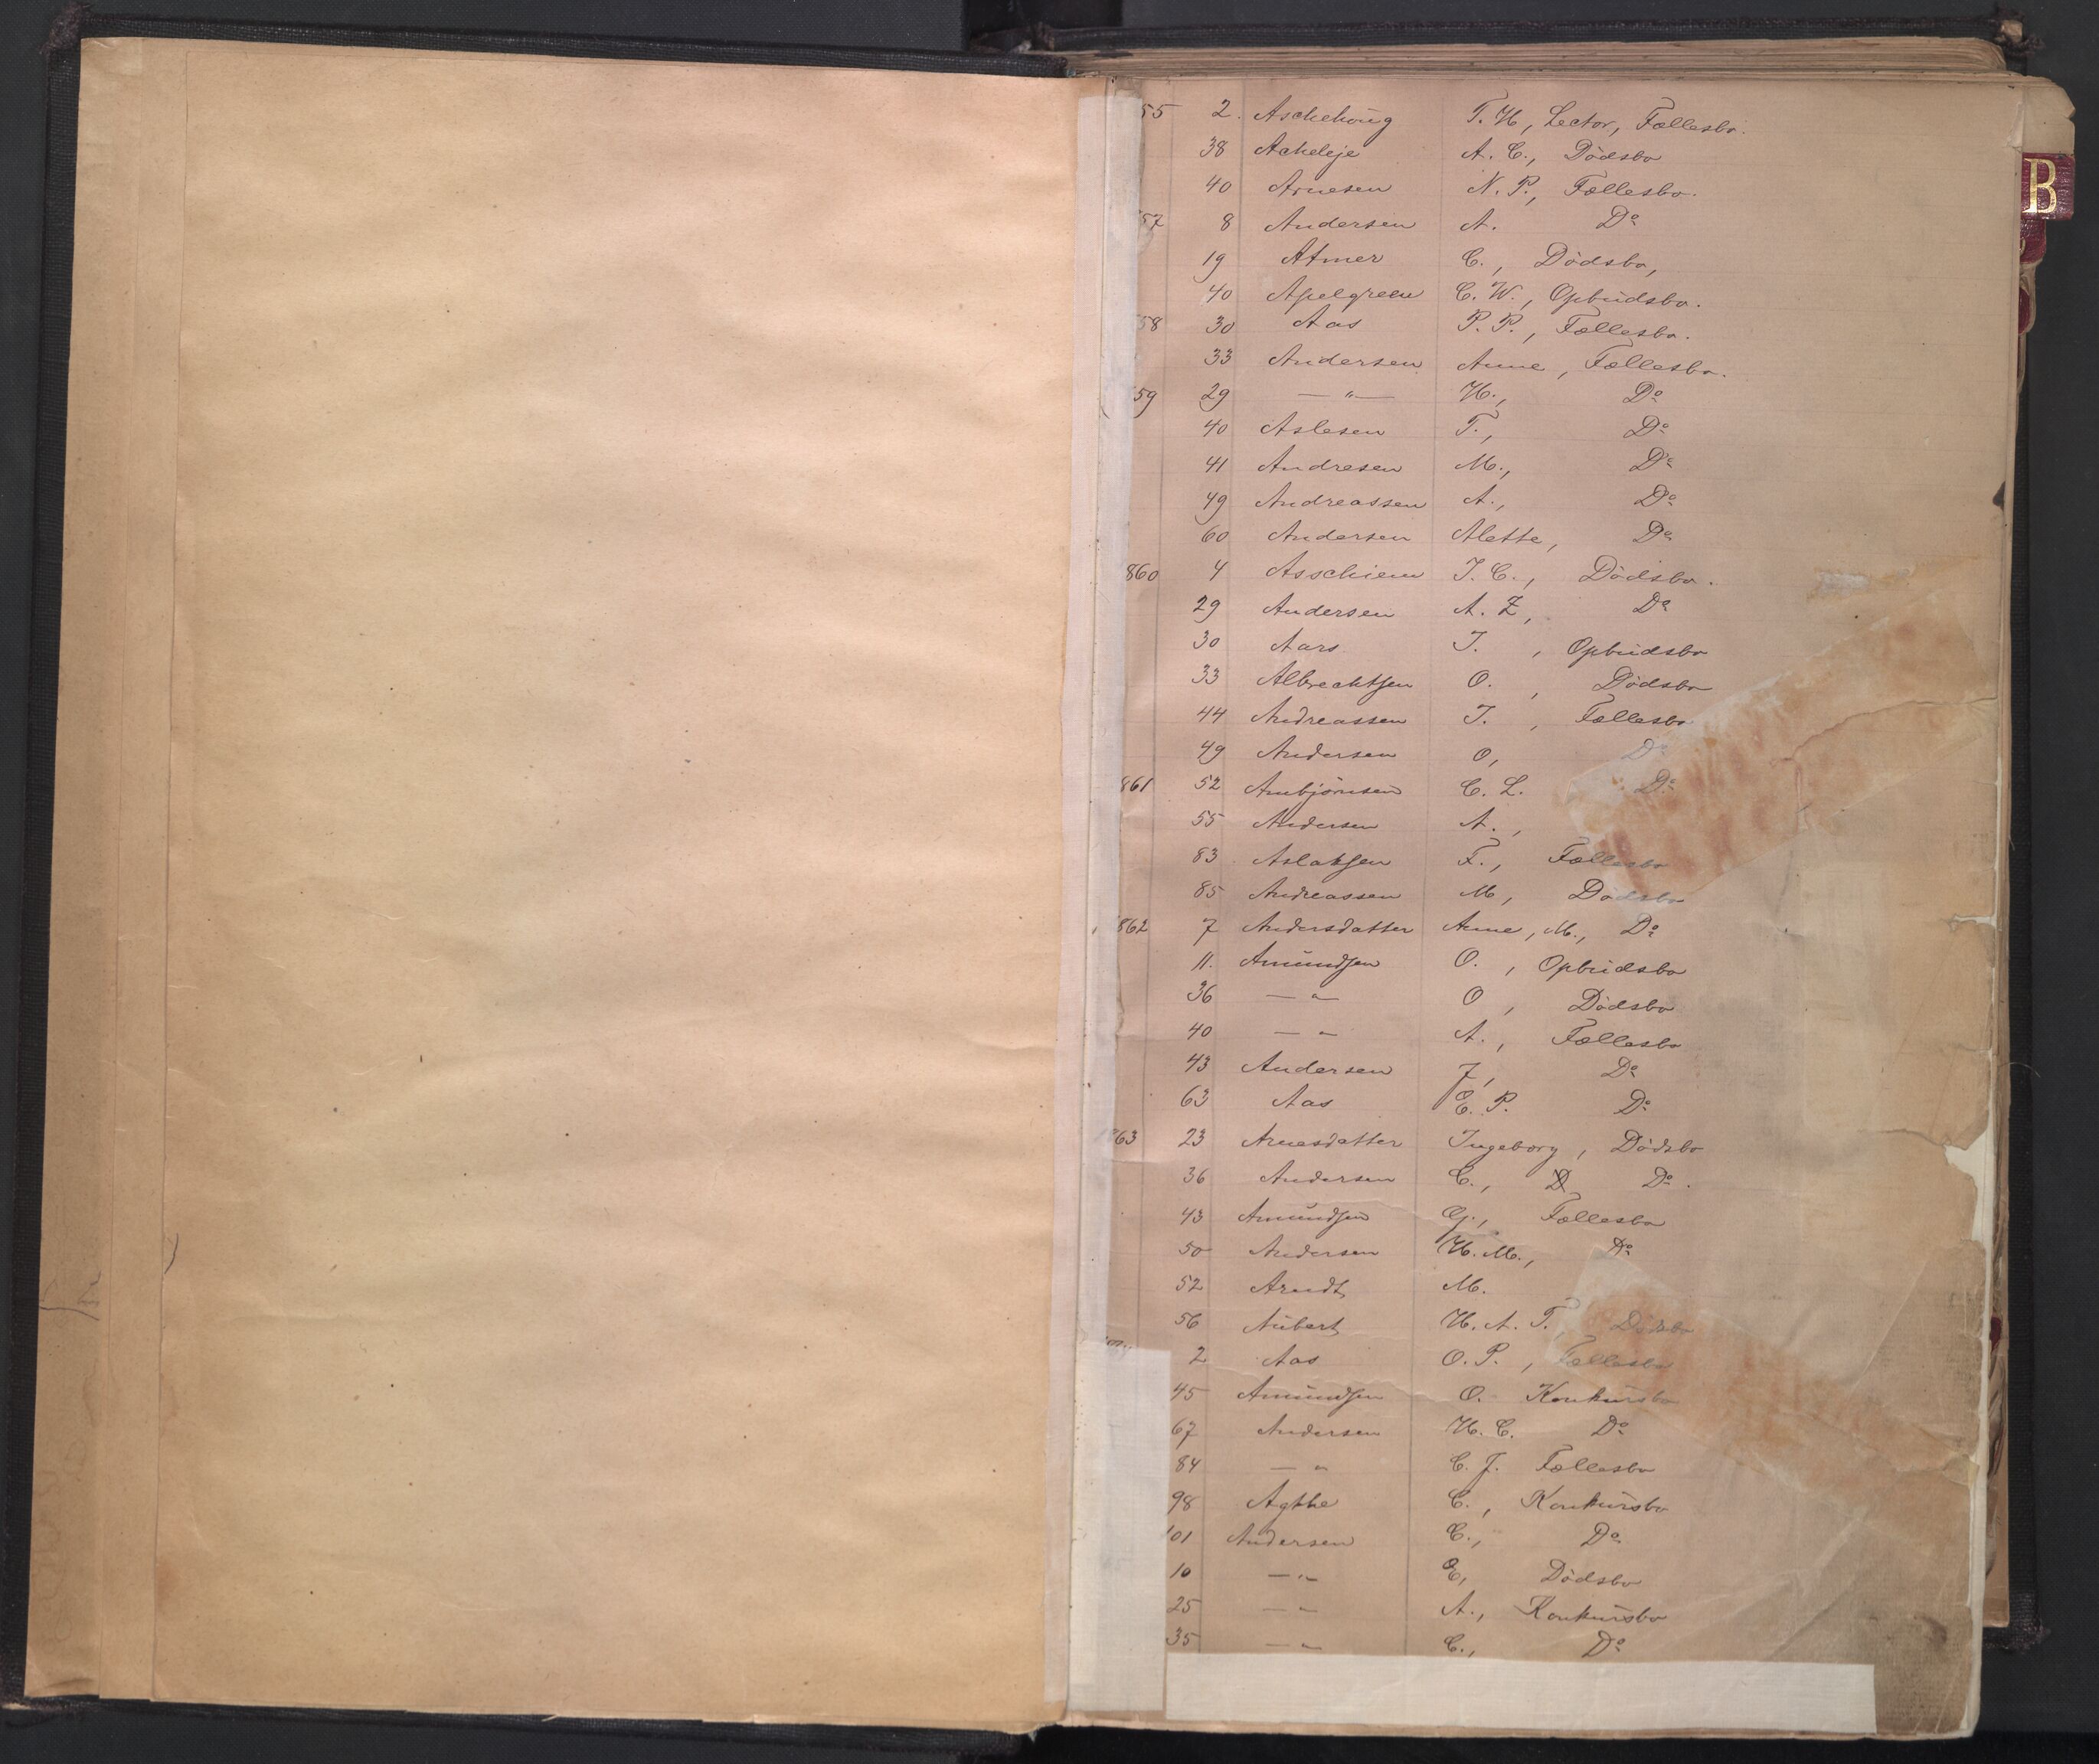 55 2. Aschehoug T. H, Lector, Fællesbo.
38 Acheleje A. C., Dödsbo
40 Arnesen N. P., Fællesbo.
57 8 Andersen A. Do
19 Atmer C., Dödsbo,
40 Apelgreen C. W., Opbudsbo.
58 30 Aas P. P., Fællesbo.
33 Andersen Anne, Fællesbo.
59 29 —"— H., Do
40 Aslesen T., Do
41 Andresen M., Do
49 Andreassen A., Do
60 Andersen Alette, Do
860 4 Asschiem J. C., Dödsbo.
29 Andersen A. Z, Do
30 Aars J. , Opbudsbo
33 Albrechtsen O. , Dödsbo
44 Andreassen J. , Fællesbo
49 Andersen O, Do
861 52 Ambjörnsen C. L. Do
55 Andersen A.,
83 Aslaksen F., Fællesbo
85 Andreassen M, Dödsbo
862 7 Andersdatter Anne, M., Do
11. Amundsen O. , Opbudsbo
36 — " O , Dödsbo
40 — " A., Fællesbo
43 Andersen J, Do
63 Aas E. P. Do
863 23 Arnesdatter Ingeborg, Dödsbo
36 Andersen C., Do.
43 Amundsen G., Fællesbo
50 Andersen H. M., Do
52 Arndt M.
56 Aubert H. A. T. Dödsbo
2 Aas O. P. , Fællesbo
45 Amundsen O. Konkursbo
67 Andersen H. C. Do
84 — " C. J. Fællesbo
98 Agthe C., Konkursbo
101 Andersen C., Do
10 — " E, Dödsbo
25 — " A., Konkursbo
35 — " C., Do
B